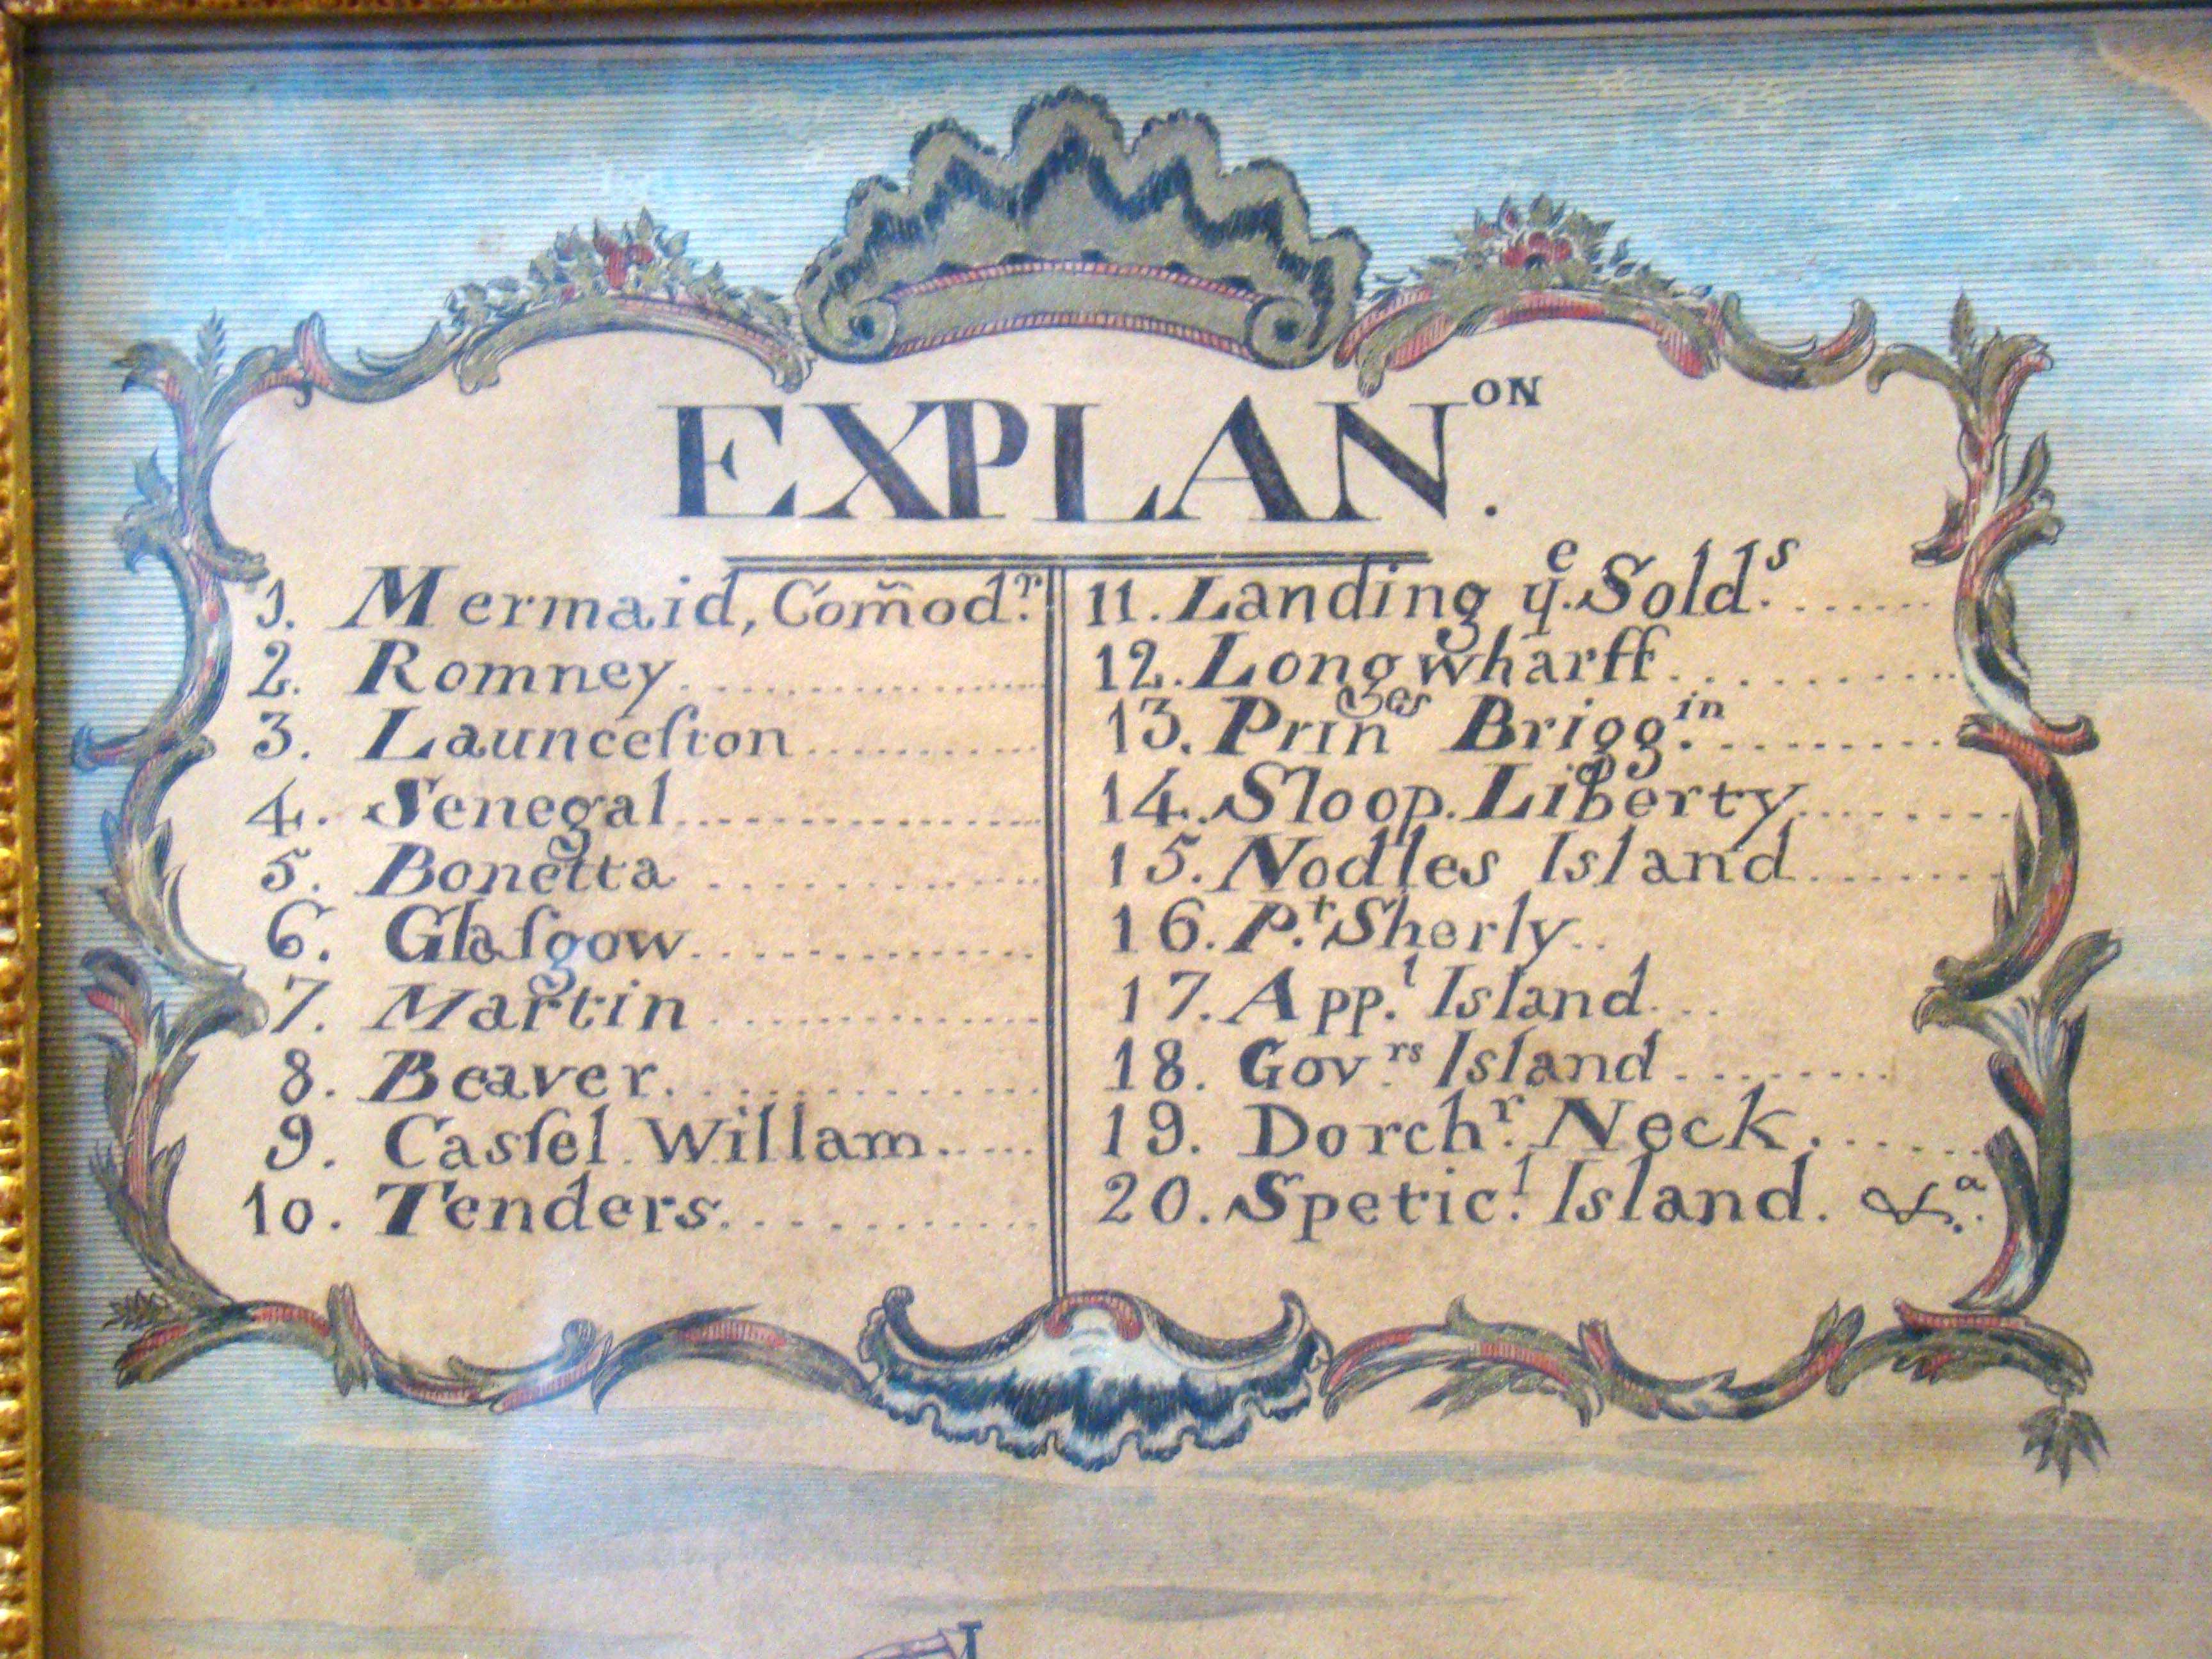 EXPLAN.ON
1. Mermaid, Com̃od.r
2. Romney
3. Launceſton
4. Senegal
5. Bonetta
6. Glaſgow
7. Martin
8. Beaver
9. Casſel Willam
10. Tenders
11. Landing ye. Sold.s
12. Long wharff
13. Pringes Brigg.in
14. Sloop. Liberty
15. Nodles Island
16. P.t Sherly
17. App.l Island
18. Gov.rs Island
19. Dorch.r Neck
20. Spetic.l Island. &.a